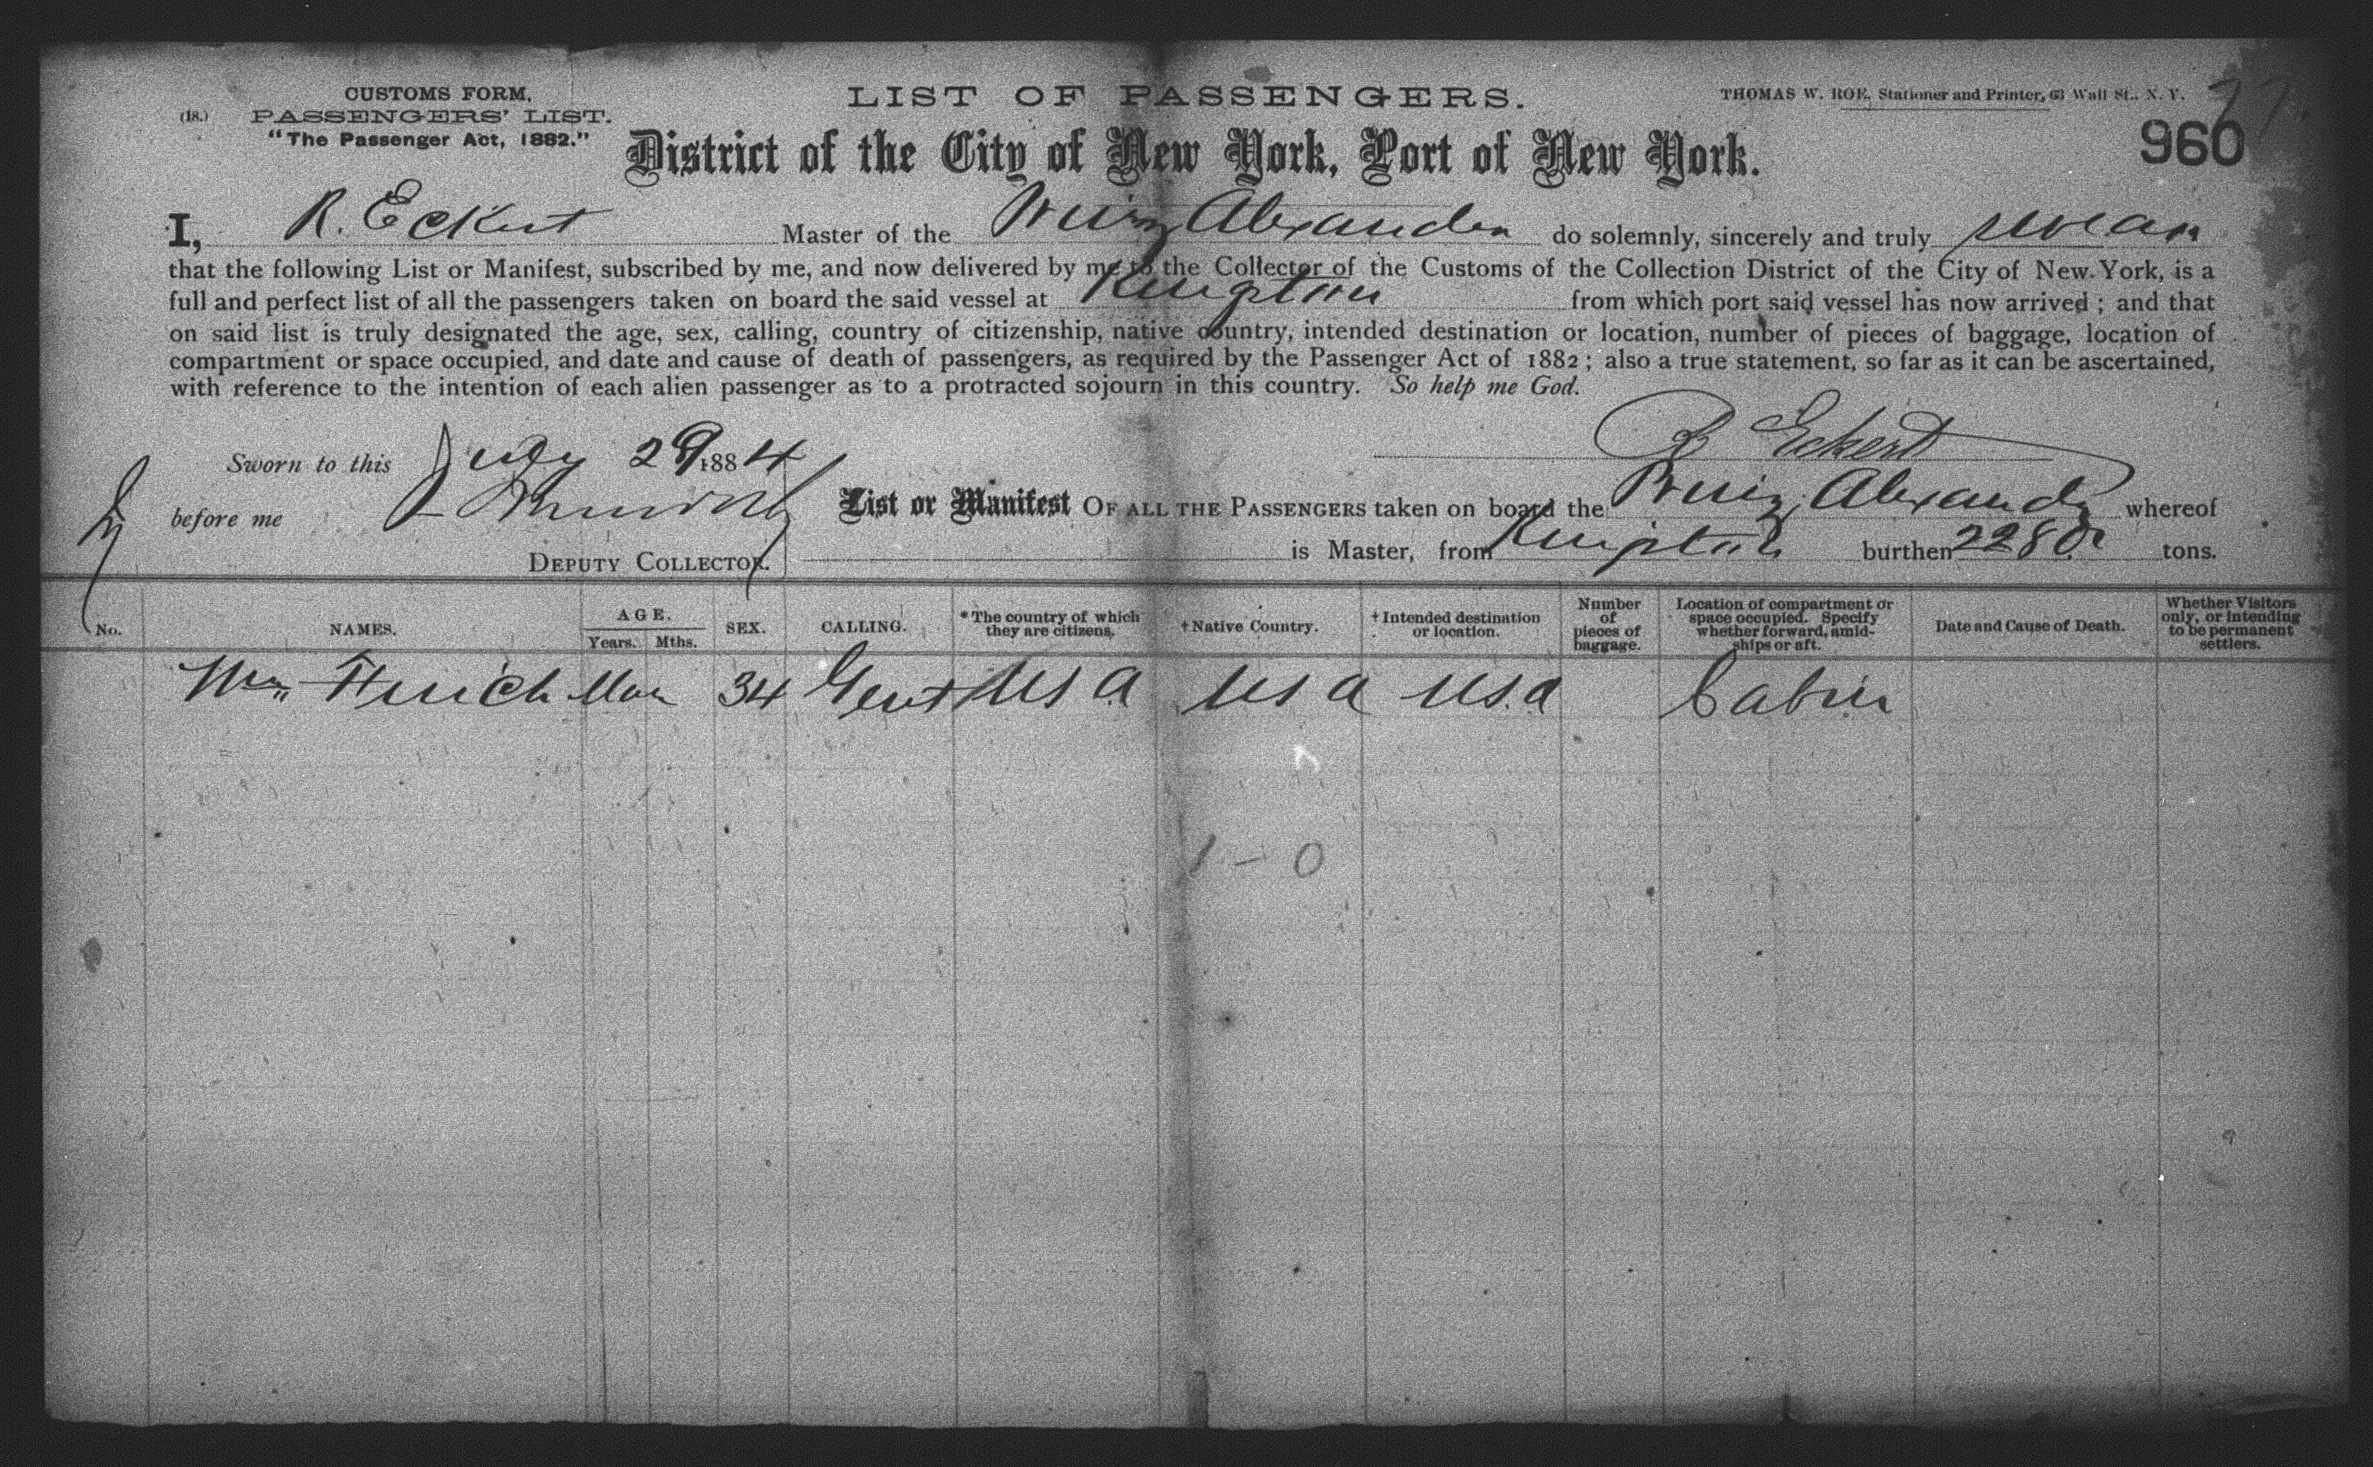 CUSTOMS FORM,
(18.) PASSENGERS' LIST.
"The Passenger Act, 1882."
LIST OF PASSENGERS.
THOMAS W. ROE, Stationer and Printer, 63 Wall St., N. Y.
77
960
District of the City of New York, Port of New York.
I, R. Eckert Master of the Prinz Alexander do solemnly, sincerely and truly swear
that the following List or Manifest, subscribed by me, and now delivered by me to the Collector of the Customs of the Collection District of the City of New York, is a
full and perfect list of all the passengers taken on board the said vessel at Kingston from which port said vessel has now arrived ; and that
on said list is truly designated the age, sex, calling, country of citizenship, native country, intended destination or location, number of pieces of baggage, location of
compartment or space occupied, and date and cause of death of passengers, as required by the Passenger Act of 1882 ; also a true statement, so far as it can be ascertained,
with reference to the intention of each alien passenger as to a protracted sojourn in this country. So help me God.
R Eckert
Sworn to this July 29 1884
before me
DEPUTY COLLECTOR.
List or Manifest OF ALL THE PASSENGERS taken on board the Prinz Alexander whereof
is Master, from Kingston burthen 2280 tons.
No. NAMES. AGE. Years. Mths. SEX. CALLING. *The country of which they are citizens. †Native Country. †Intended destination or location. Number of pieces of baggage. Location of compartment or space occupied. Specify whether forward, amidships or aft. Date and Cause of Death. Whether Visitors only, or intending to be permanent settlers.
Wm Man 34 Gent USA USA USA Cabin
1 - 0